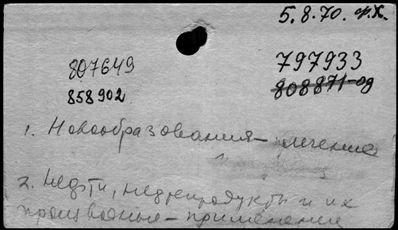 5.8.70. ф.Х.
807649 797933
858902 808871-09
1. Новообразования - лечение
2. Нефти, нефтепродукты и их
производные - применение